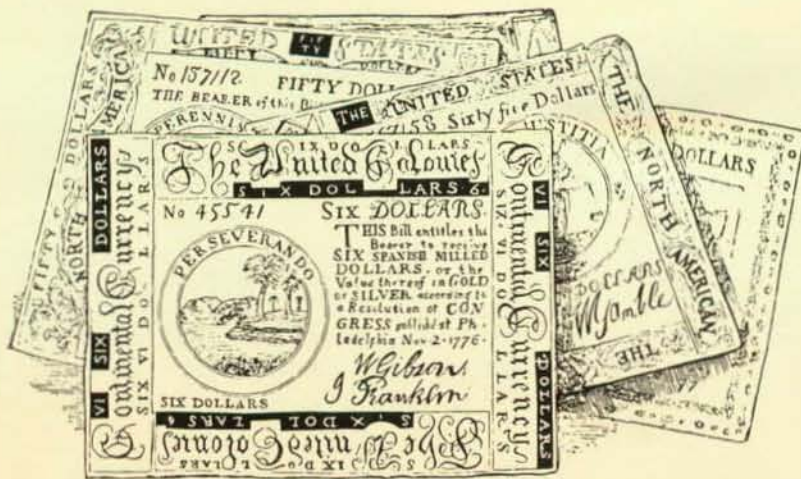 UNITED FIF TY STATES
FIFTY DOLLARS
NORTH AMERICA
No 157112. FIFTY DOLL
THE BEARER of this B
PERENNIS
THE UNITED STATES
58 Sixty five Dollars
JUSTITIA
THE NORTH AMERICAN
THE
DOLLARS
DOLLARS
SIX DOLLARS
The United Colonies
SIX DOL LARS 6.
No 45541 SIX DOLLARS.
THIS Bill entitles the
Bearer to receive
SIX SPANISH MILLED
DOLLARS. or the
Value thereof in GOLD
or SILVER according to
a Resolution of CON
GRESS publishd at Ph-
ladelphia Nov-2-1776-
W Gibson.
J Franklin
PERSEVERANDO
SIX DOLLARS
VI SIX DOLLARS
Continental Currencys
SIX VI DO LLARS
Continental Currencys
SIX. VI DO LLARS
VI SIX DOLLARS
SIX DOL LARS 6
The United Colonies
SIX DO LLARS